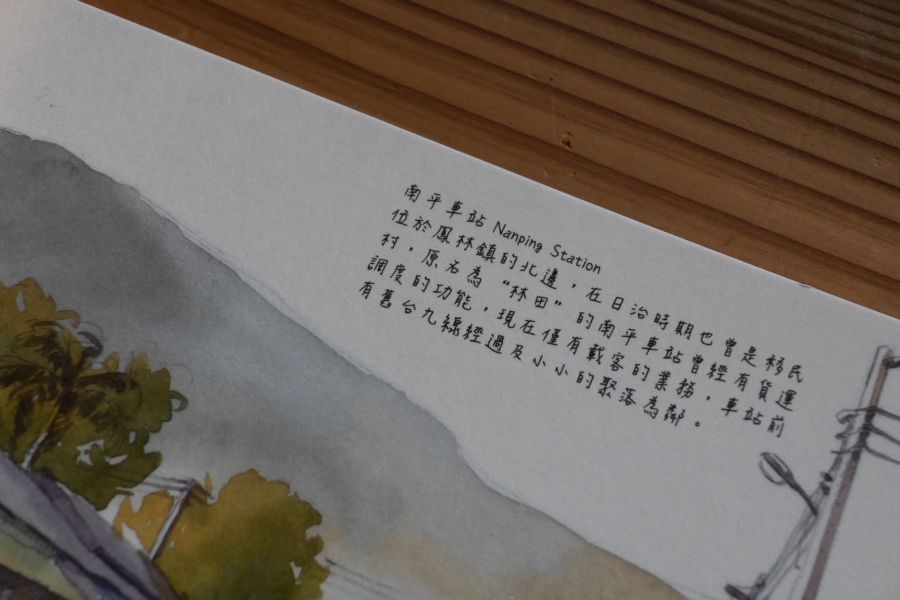 南平車站 Nanping Station
位於鳳林鎮的北邊，在日治時期也曾是移民
村，原名為“林田”的南平車站曾經有貨運
調度的功能，現在僅有載客的業務，車站前
有舊台九線經過及小小的聚落為鄰。